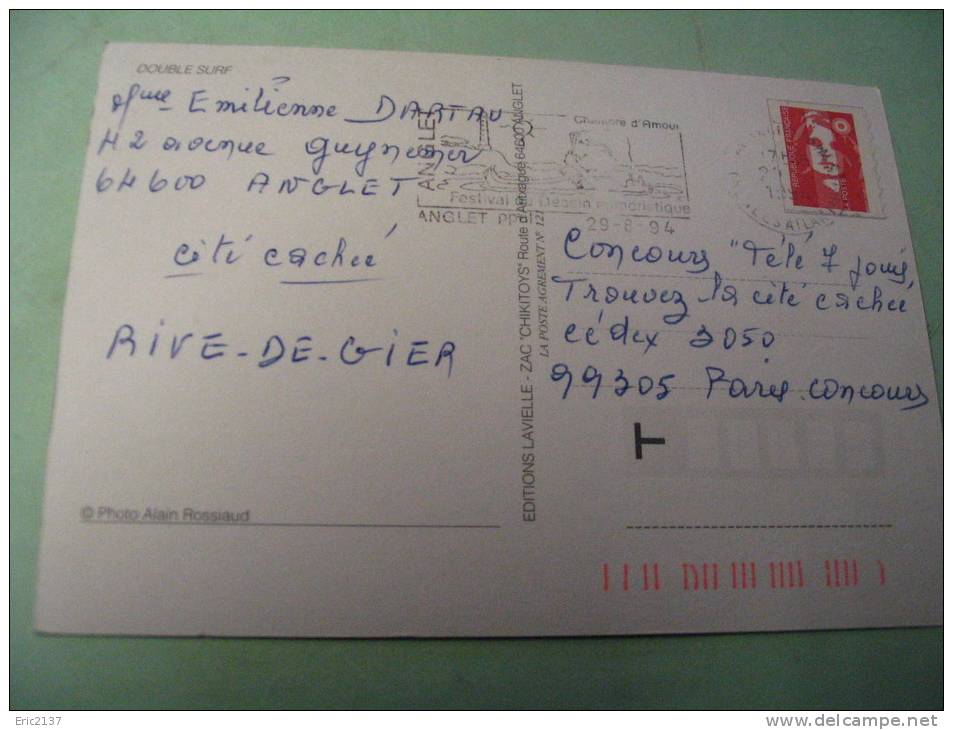 DOUBLE SURF
Mme Emilienne DARTAU
42 avenue guynemer
64600 ANGLET
cité cachée
RIVE-DE-GIER
© Photo Alain Rossiaud
EDITIONS LAVIELLE - ZAC "CHIKITOYS" Route d'Arbonne 64600 ANGLET
LA POSTE AGREMENT N° 121
ANGLET
Chambre d'Amour
Festival du Dessin Humoristique
ANGLET PPAL
29-8-94
REPUBLIQUE FRANÇAISE
LA POSTE
Concours "Télé 7 jours,
Trouvez la cité cachée
cédex 3050
99305 Paris concours
T
Eric2137
www.delcampe.net